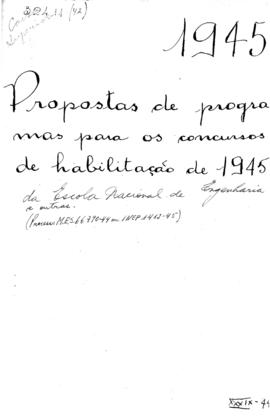 32414 (42)
1945
Propostas de progra
mas para os concursos
de habilitação de 1945
da Escola Nacional de Engenharia
e outras.
(Processo M.E.S. 66790-44 ou INEP 1412-45)
XXXIX-44